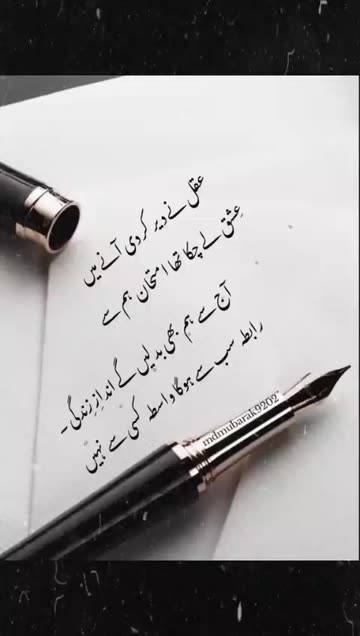 عقل نے دیر کر دی آنے میں
عِشق لے چکا تھا امتحان ہم سے
آج سے ہم بھی بدلیں گے اندازِ زندگی ۔
رابطہ سب سے ہوگا واسطہ کسی سے نہیں
mdmubarak9202